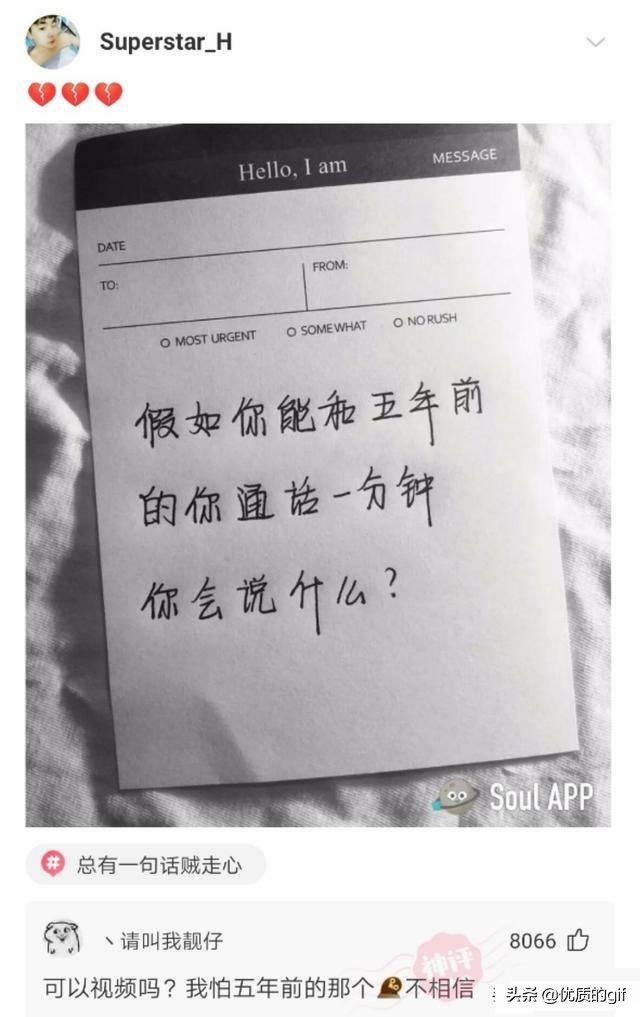 Superstar_H
💔💔💔
Hello, I am
MESSAGE
DATE
TO:
FROM:
MOST URGENT
SOMEWHAT
NO RUSH
假如你能和五年前
的你通话一分钟
你会说什么?
Soul APP
# 总有一句话贼走心
丶请叫我靓仔
8066
神评
可以视频吗?我怕五年前的那个不相信
头条 @优质的gif